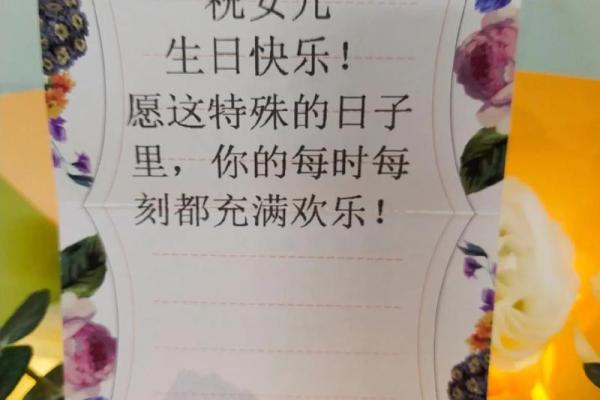 祝女儿
生日快乐！
愿这特殊的日子
里，你的每时每
刻都充满欢乐！